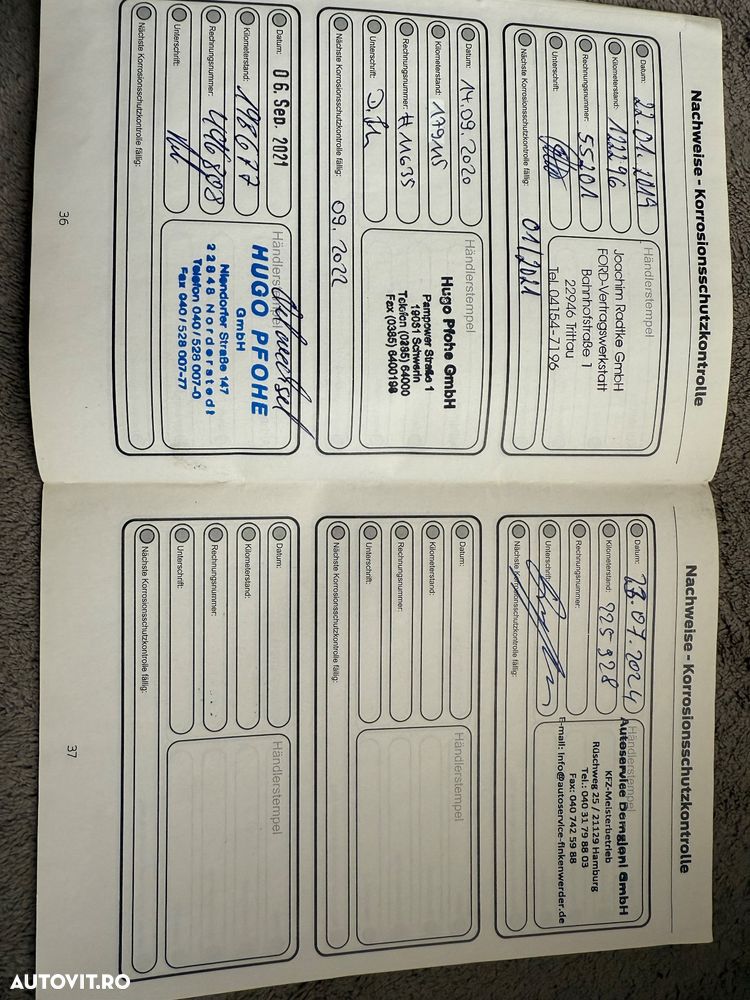 Nachweise - Korrosionsschutzkontrolle
Datum: 22.01.2019
Kilometerstand: 122296
Rechnungsnummer: 55201
Unterschrift:
Nächste Korrosionsschutzkontrolle fällig: 01/2021
Händlerstempel
Joachim Radtke GmbH
FORD-Vertragswerkstatt
Bahnhofstraße 1
22946 Trittau
Tel. 04154-7196
Datum: 14.09.2020
Kilometerstand: 179115
Rechnungsnummer: HM635
Unterschrift:
Nächste Korrosionsschutzkontrolle fällig: 09.2022
Händlerstempel
Hugo Pfohe GmbH
Pampower Straße 1
19061 Schwerin
Telefon (0385) 64000
Fax (0385) 6400198
Datum: 06. Sep. 2021
Kilometerstand: 198677
Rechnungsnummer: 4496808
Unterschrift:
Nächste Korrosionsschutzkontrolle fällig:
Händlerstempel
HUGO PFOHE
GmbH
Niendorfer Straße 147
22848 Norderstedt
Telefon 040/528 007-0
Fax 040/528 007-77
36
Nachweise - Korrosionsschutzkontrolle
Datum: 23.07.2024
Kilometerstand: 225928
Rechnungsnummer:
Unterschrift:
Nächste Korrosionsschutzkontrolle fällig:
Händlerstempel
Autoservice Demgiani GmbH
KFZ-Meisterbetrieb
Rüschweg 25 / 21129 Hamburg
Tel.: 040 31 79 88 03
Fax: 040 742 59 88
E-mail: info@autoservice-finkenwerder.de
Datum:
Kilometerstand:
Rechnungsnummer:
Unterschrift:
Nächste Korrosionsschutzkontrolle fällig:
Händlerstempel
Datum:
Kilometerstand:
Rechnungsnummer:
Unterschrift:
Nächste Korrosionsschutzkontrolle fällig:
Händlerstempel
37
AUTOVIT.RO